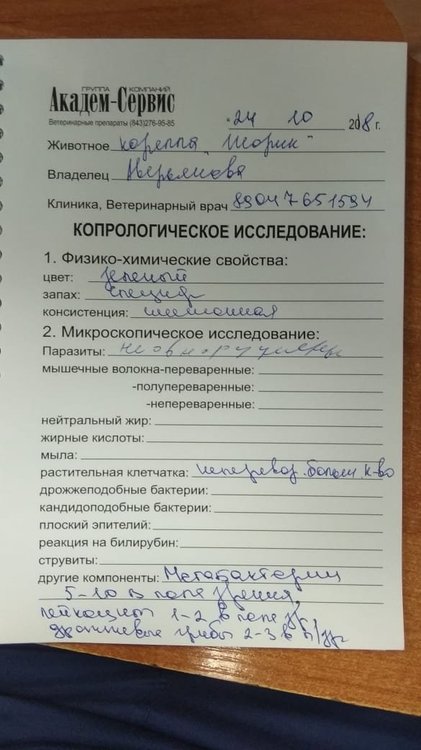 ГРУППА КОМПАНИЙ
Академ-Сервис
Ветеринарные препараты (843)276-95-85
"24 10 2018 г.
Животное корелла "Шорик"
Владелец
Клиника, Ветеринарный врач 89047651594
КОПРОЛОГИЧЕСКОЕ ИССЛЕДОВАНИЕ:
1. Физико-химические свойства:
цвет: зеленый
запах: специф
консистенция:
2. Микроскопическое исследование:
Паразиты: не обнаружены
мышечные волокна-переваренные:
-полупереваренные:
-непереваренные:
нейтральный жир:
жирные кислоты:
мыла:
растительная клетчатка: неперевар. больш к-во
дрожжеподобные бактерии:
кандидоподобные бактерии:
плоский эпителий:
реакция на билирубин:
струвиты:
другие компоненты: Метабактерии
5-10 в поле зрения,
лейкоциты 1-2 в поле зр,
дрожжевые грибы 2-3 в п/зр